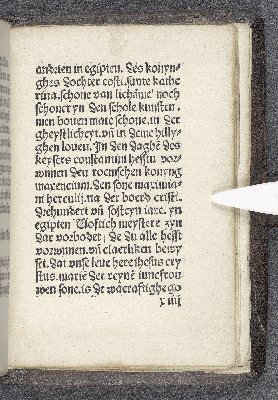 anderen in egipten. des konyn-
ghes dochter costi. sunte kathe
rina. schone van lichame noch
schoner yn den schole kunsten.
men bouen mate schone. in der
gheystlicheyt. vñ in deme hilly-
ghen louen. In den daghē des
keysers constantini heffstu vor-
wunnen den romeschen konyng
maxencium. den sone maximia-
ni herculij. na der bort cristi.
drehundert vñ sosteyn iare. yn
egipten vofftich meystere zyn
dar vorbodet, de du alle hefft
vorwunnen. vñ claerliken bewy
set. dat unse leue here ihesus cry
stus. marië der reynē iuncfrou
wen sone. is de waraftighe go
x iiij